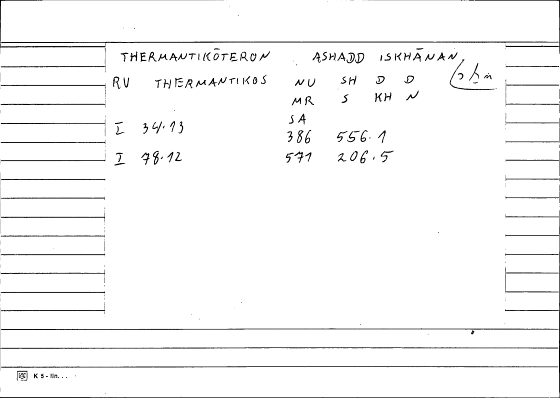 THERMANTIKŌTERON ASHADD ISKHĀNAN
RV THERMANTIKOS NU SH D D
MR S KH N
SA
I 34.13 386 556.1
I 78.12 571 206.5
K 5 - lin. . .